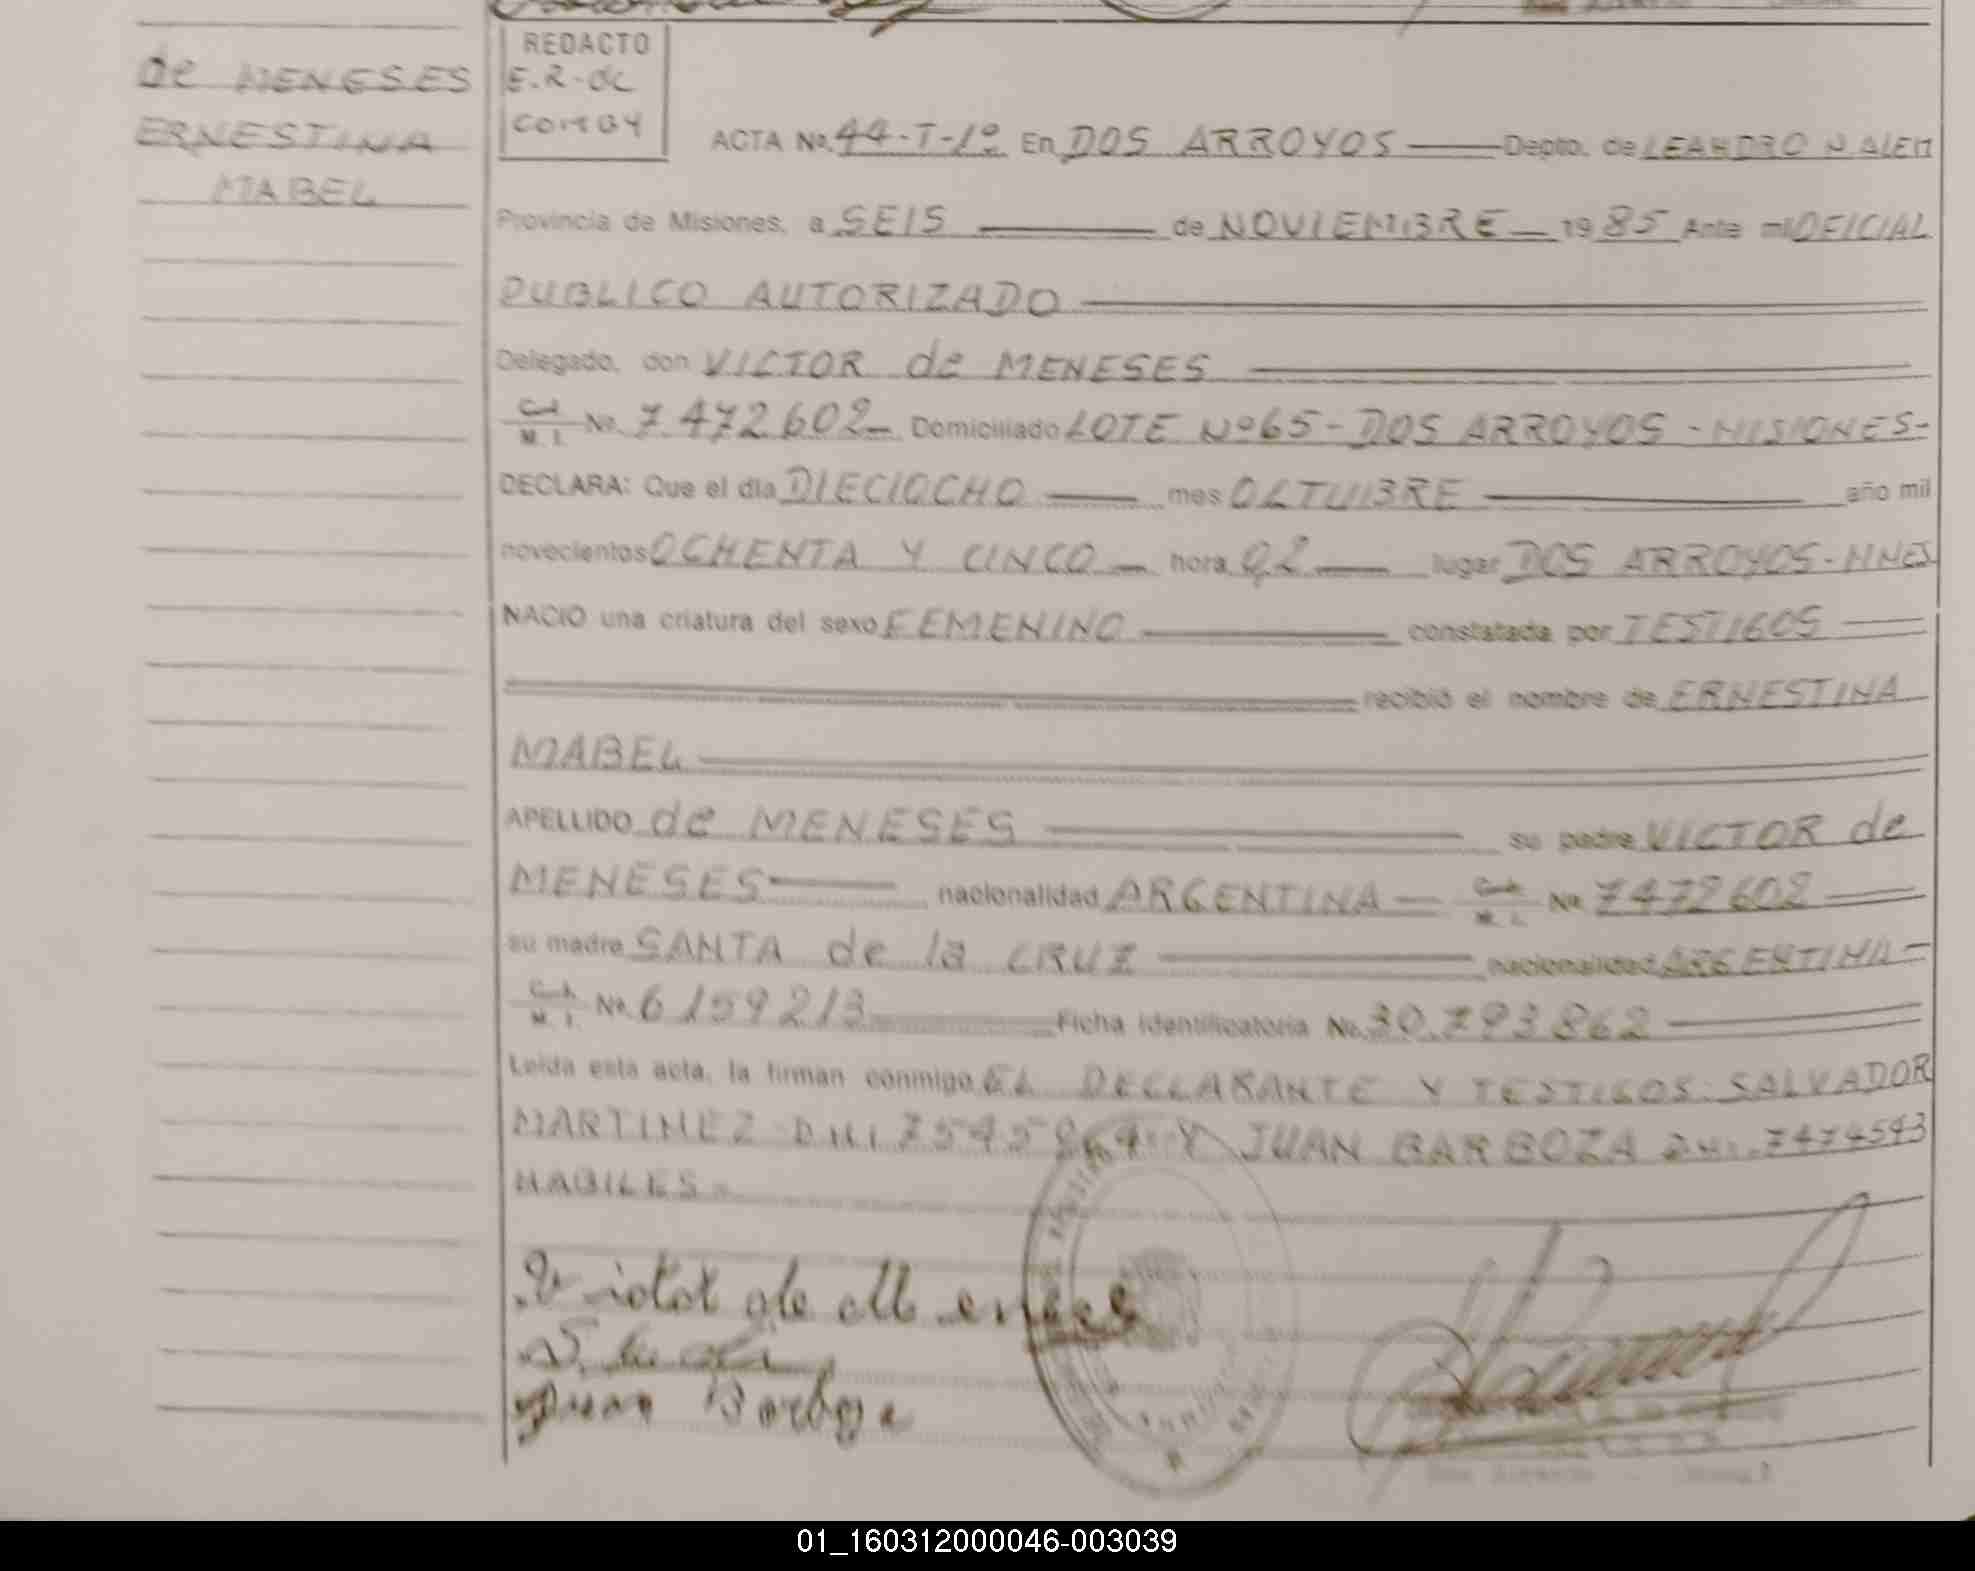 de MENESES
ERNESTINA
MABEL
REDACTO
E.R-de
ACTA No. 44-T-1º En DOS ARROYOS Depto. de LEANDRO N. ALEM
Provincia de Misiones, a SEIS de NOVIEMBRE 1985 Ante mi OFICIAL
PUBLICO AUTORIZADO
Delegado, don VICTOR de MENESES
M. I. No. 7.472602 Domiciliado LOTE Nº65-DOS ARROYOS - MISIONES-
DECLARA: Que el día DIECIOCHO mes OCTUBRE año mil
novecientos OCHENTA Y CINCO hora 02 lugar DOS ARROYOS-MNES
NACIO una criatura del sexo FEMENINO constatada por TESTIGOS
recibió el nombre de ERNESTINA
MABEL
APELLIDO de MENESES su padre VICTOR de
MENESES nacionalidad ARGENTINA M. I. No. 7472602
su madre SANTA de la CRUZ nacionalidad ARGENTINA-
M. I. No. 6159213 Ficha identificatoria No. 30.793862
Leída esta acta, la firman conmigo EL DECLARANTE Y TESTIGOS: SALVADOR
MARTINEZ DNI Y JUAN BARBOZA DNI. 7474543
HABILES-
Victor de Meneses
Juan Barboza
01_160312000046-003039